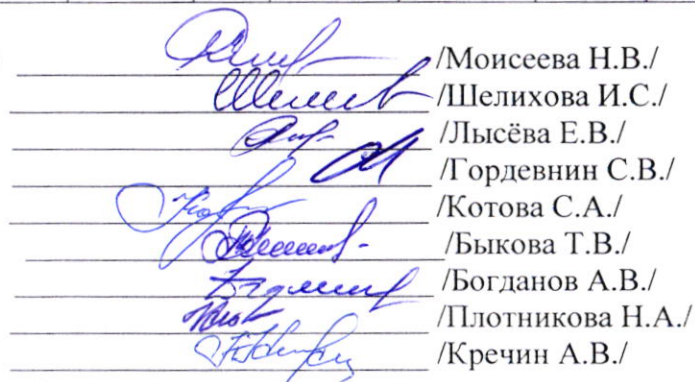 /Моисеева Н.В./
/Шелихова И.С./
/Лысёва Е.В./
/Гордевнин С.В./
/Котова С.А./
/Быкова Т.В./
/Богданов А.В./
/Плотникова Н.А./
/Кречин А.В./